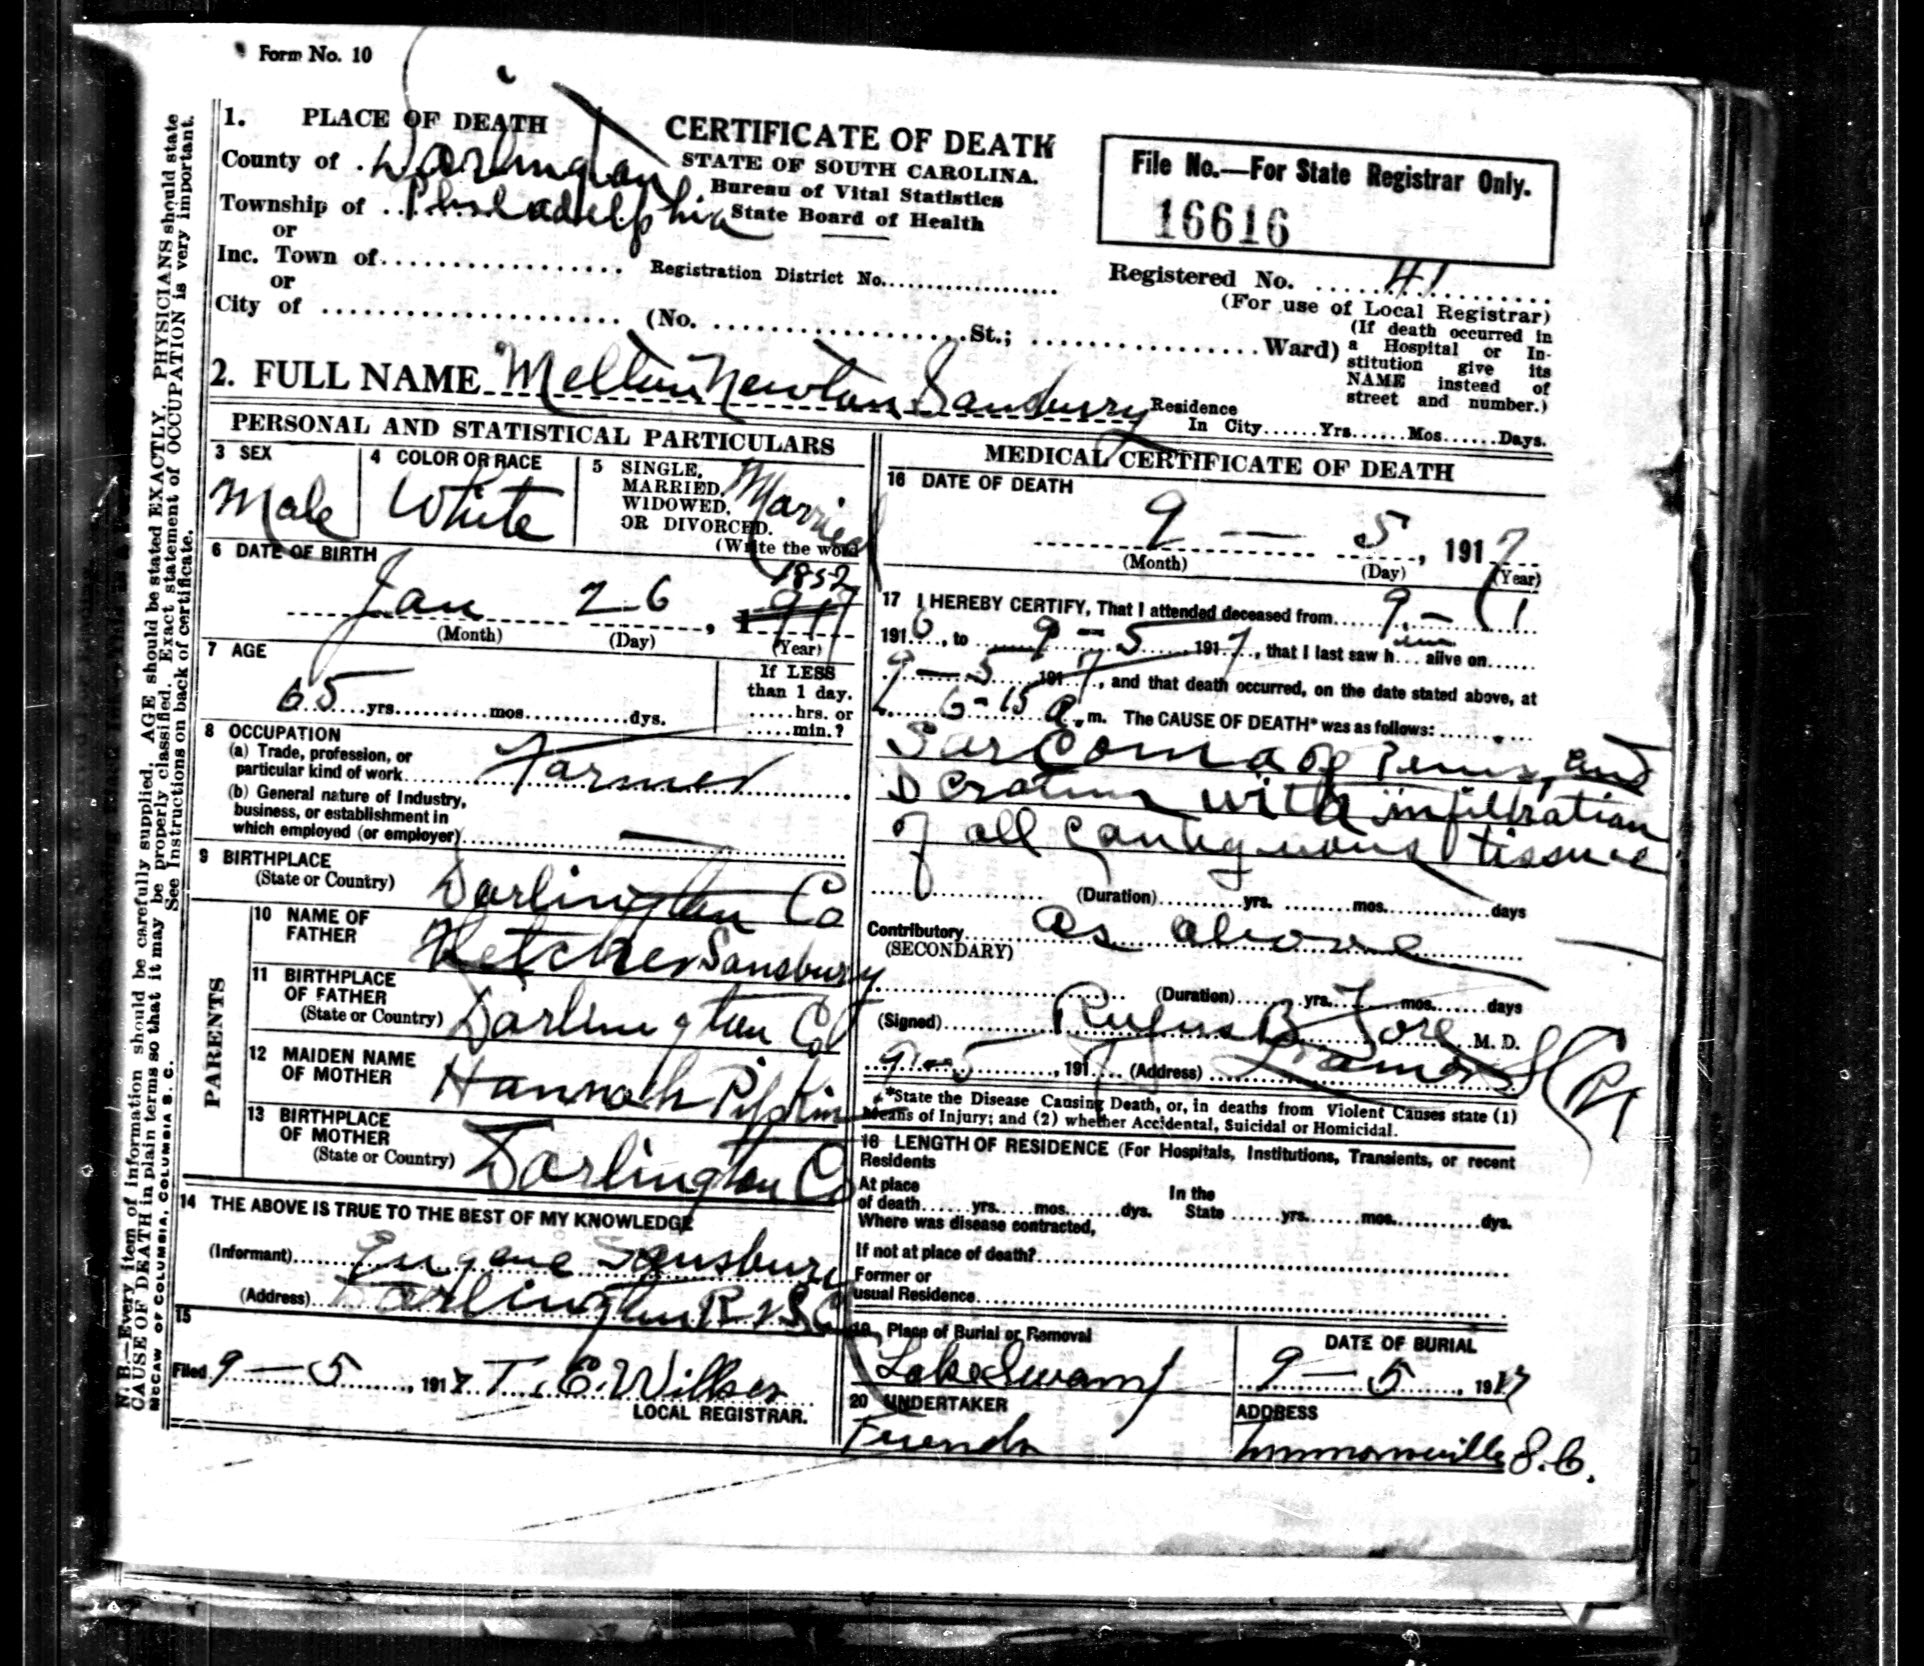 Form No. 10
1. PLACE OF DEATH
County of Darlington
Township of Philadelphia
or
Inc. Town of
or
City of (No. St.; Ward)
CERTIFICATE OF DEATH
STATE OF SOUTH CAROLINA.
Bureau of Vital Statistics
State Board of Health
Registration District No.
File No.—For State Registrar Only.
16616
Registered No. 41
(For use of Local Registrar)
(If death occurred in
a Hospital or In-
stitution give its
NAME instead of
street and number.)
2. FULL NAME Newton Sansbury
Residence
In City Yrs. Mos. Days.
PERSONAL AND STATISTICAL PARTICULARS
3 SEX
Male
4 COLOR OR RACE
White
5 SINGLE,
MARRIED,
WIDOWED,
OR DIVORCED.
(Write the word
Married
6 DATE OF BIRTH
1852
Jan 26, 1917
(Month) (Day) (Year)
7 AGE
65 yrs. mos. dys.
If LESS
than 1 day.
hrs. or
min.?
8 OCCUPATION
(a) Trade, profession, or
particular kind of work Farmer
(b) General nature of Industry,
business, or establishment in
which employed (or employer)
9 BIRTHPLACE
(State or Country) Darlington Co
PARENTS
10 NAME OF
FATHER Fletcher Sansbury
11 BIRTHPLACE
OF FATHER
(State or Country) Darlington Co
12 MAIDEN NAME
OF MOTHER Hannah Pipkin
13 BIRTHPLACE
OF MOTHER
(State or Country) Darlington Co
14 THE ABOVE IS TRUE TO THE BEST OF MY KNOWLEDGE
(Informant) Eugene Sansbury
(Address) Darlington S.C.
15
Filed 9-5, 1917 T. E. Wilkes
LOCAL REGISTRAR.
MEDICAL CERTIFICATE OF DEATH
16 DATE OF DEATH
9 — 5, 1917
(Month) (Day) (Year)
17 I HEREBY CERTIFY, That I attended deceased from 9-1
1916, to 9-5 1917, that I last saw him alive on
9-5 1917, and that death occurred, on the date stated above, at
6-15 a.m. The CAUSE OF DEATH* was as follows:
Sarcoma of Penis, and
Scrotum with infiltration
of all contiguous tissue
(Duration) yrs. mos. days
Contributory As above
(SECONDARY)
(Duration) yrs. mos. days
(Signed) Rufus B M. D.
9-5, 1917 (Address) Lamar S.C.
*State the Disease Causing Death, or, in deaths from Violent Causes state (1)
Means of Injury; and (2) whether Accidental, Suicidal or Homicidal.
18 LENGTH OF RESIDENCE (For Hospitals, Institutions, Transients, or recent
Residents
At place
of death yrs. mos. dys. In the
State yrs. mos. dys.
Where was disease contracted,
If not at place of death?
Former or
usual Residence
19 Place of Burial or Removal
Lake Swamp
DATE OF BURIAL
9-5, 1917
20 UNDERTAKER
Friends
ADDRESS
Timmonsville S.C.
N. B.—Every item of information should be carefully supplied. AGE should be stated EXACTLY. PHYSICIANS should state
CAUSE OF DEATH in plain terms so that it may be properly classified. Exact statement of OCCUPATION is very important.
See Instructions on back of certificate.
McCAW OF COLUMBIA, COLUMBIA S. C.